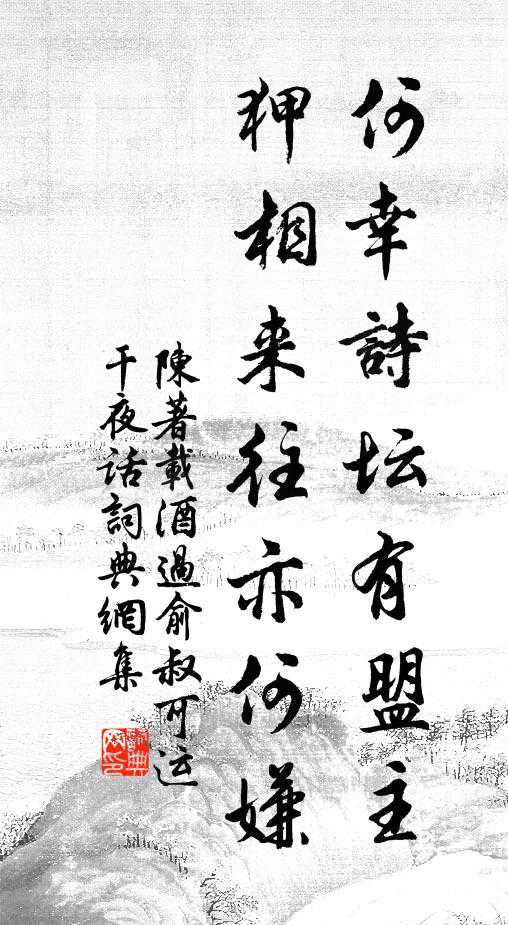 何幸詩坛有盟主
狎相来往亦何嫌
陳著載酒過俞叔可运
干夜话詞典網集